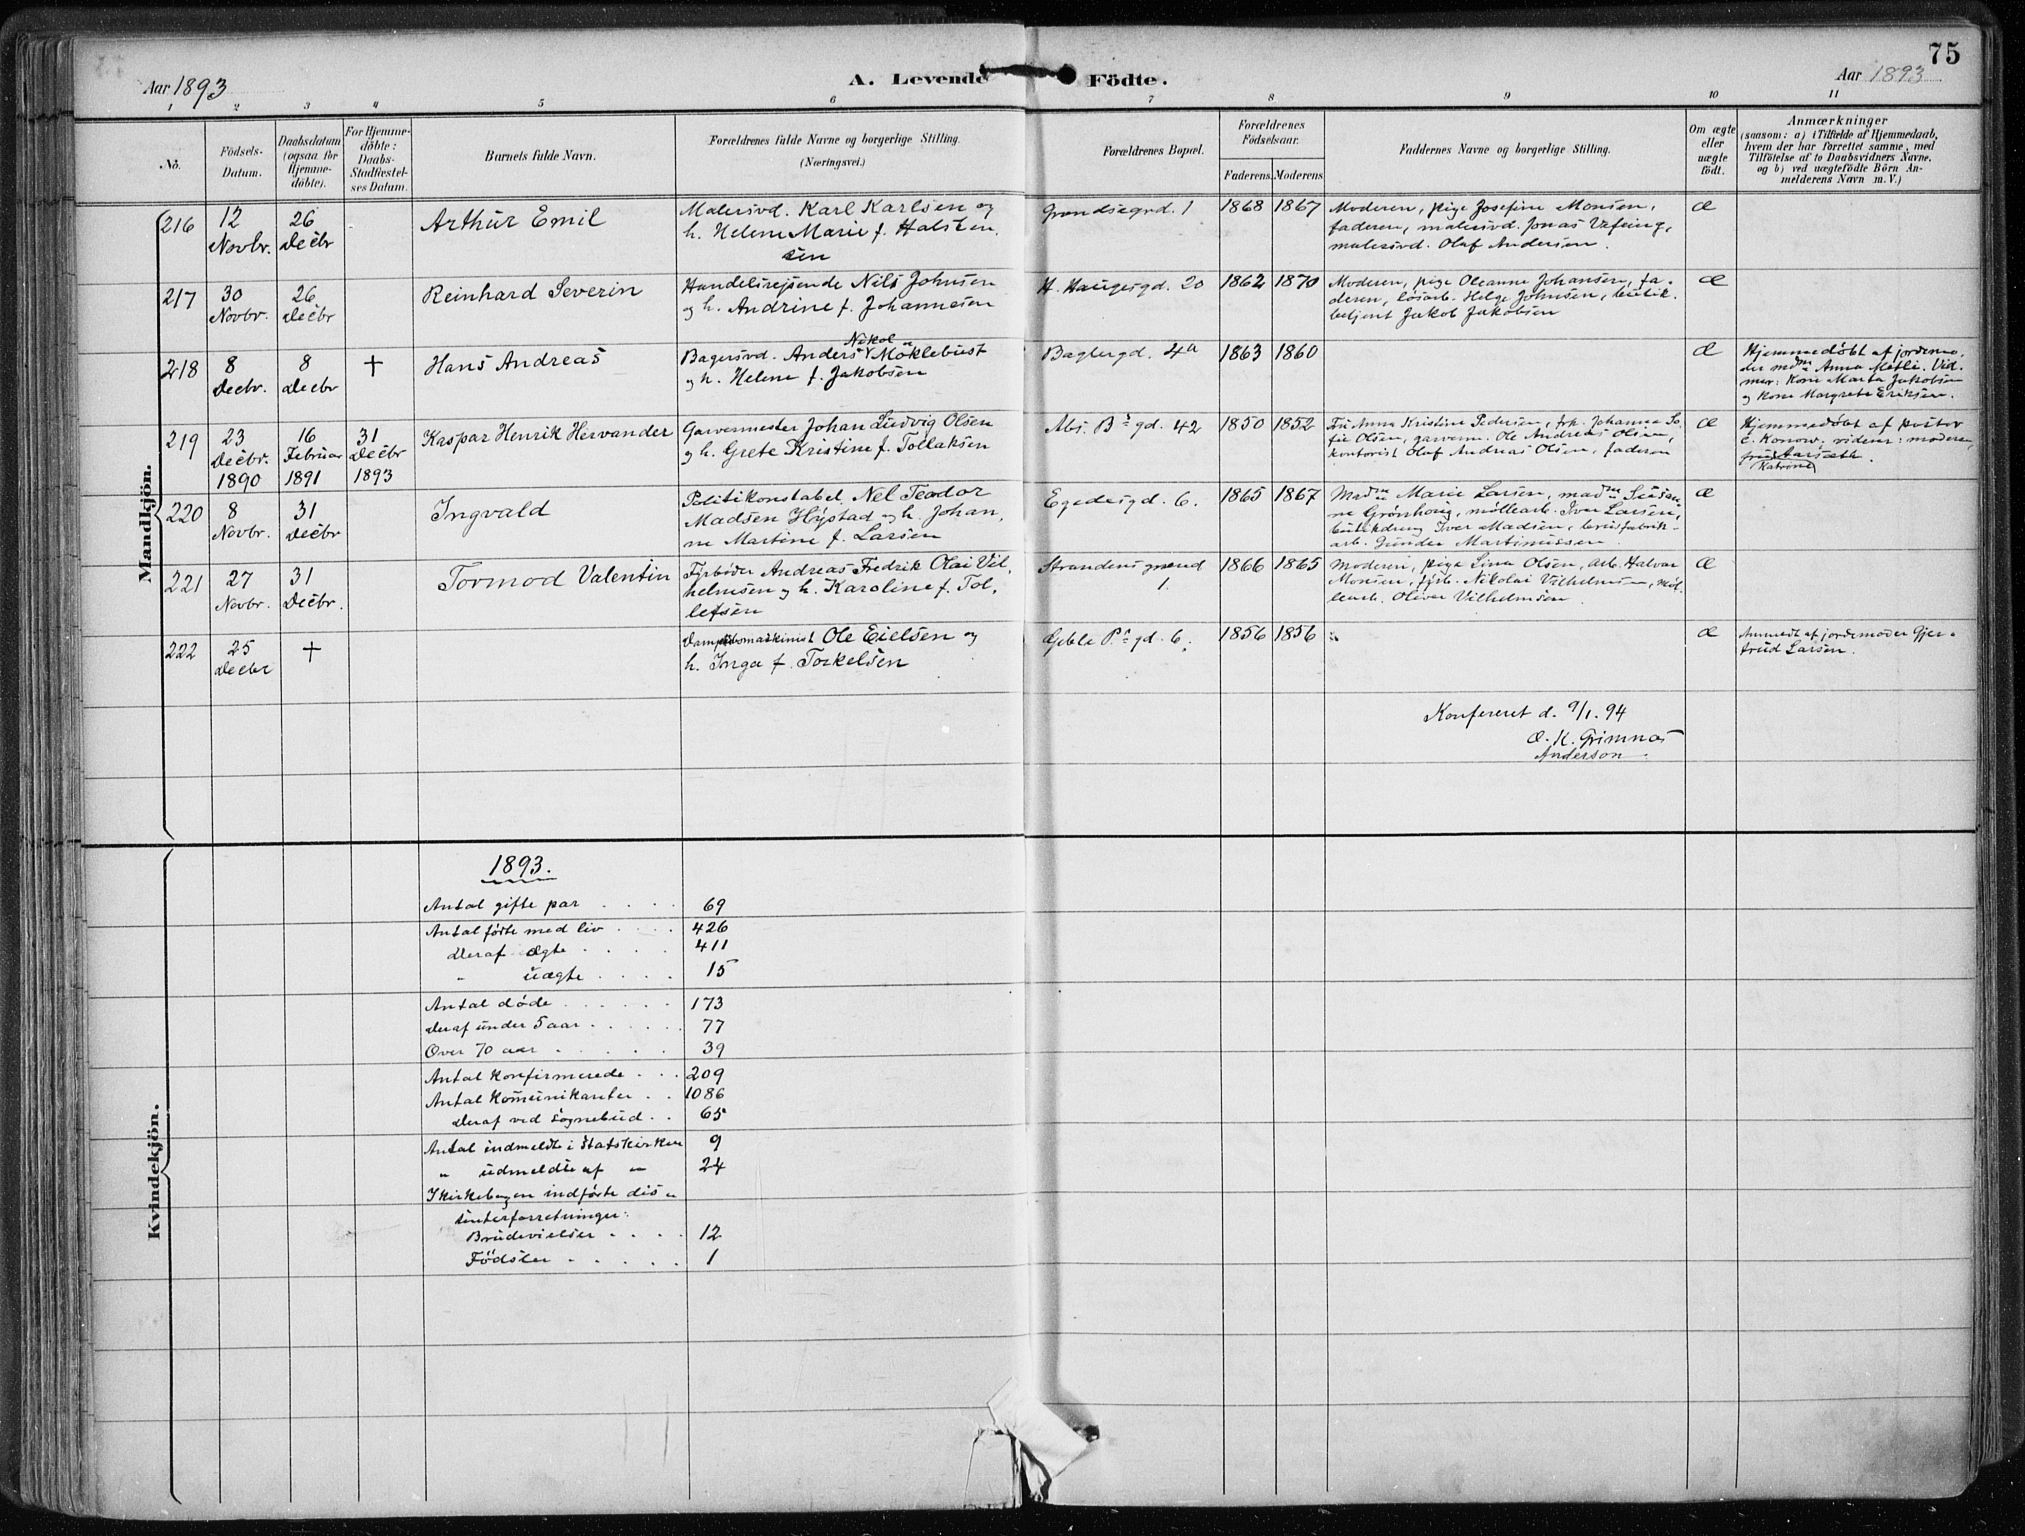 75
Aar 1893
A. Levende Födte.
Aar 1893
1 2 3 4 5 6 7 8 9 10 11
No.
Födsels-
Datum.
Daabsdatum
(ogsaa for
Hjemme-
döbte).
For Hjemme-
döbte:
Daabs-
Stadfæstel-
ses Datum.
Barnets fulde Navn.
Forældrenes fulde Navne og borgerlige Stilling.
(Næringsvei.)
Forældrenes Bopæl.
Forældrenes
Födselsaar.
Faderens. Moderens.
Faddernes Navne og borgerlige Stilling.
Om ægte
eller
uægte
födt.
Anmærkninger
(saasom: a) i Tilfælde af Hjemmedaab,
hvem der har forrettet samme, med
Tilföielse af to Daabsvidners Navne,
og b) ved uægtefödte Börn An-
melderens Navn m. V.)
Mandkjön.
216
12
Novbr.
26
Decbr
Arthur Emil
Malersvd. Karl Karlsen og
h. Helene Marie f. Halsten,
sen
Grøndsegrd. 1
1868 1867
Moderen, pige Josefine Monsen,
faderen, malersvd. Jonas
malersvd. Olaf Andersen.
æ
217
30
Novbr.
26
Decbr
Reinhard Severin
Handelsrejsende Nils Johnsen
og h. Andrine f. Johannesen
H. Haugesgd. 20
1862 1870
Moderen, pige Oleanne Johansen, fa-
deren, løsarb. Helge Johnsen, butik-
betjent Jakob Jakobsen
æ
218
8
Decbr.
8
Decbr
+
Hans Andreas
Nikol
Bagersvd. Anders Møklebust
og h. Helene f. Jakobsen
Baglergd. 4a
1863 1860
æ
Hjemmedøbt af jordemo,
der mdm Anna Vid,
ner: Kone Marta Jakobsen
og kone Margrete Eriksen.
219
23
Decbr.
1890
16
Februar
1891
31
Decbr
1893
Kaspar Henrik Hervander
Garvermester Johan Ludvig Olsen
og h. Grete Kristine f. Tollaksen
Abs. B's gd. 42
1850 1852
Fru Anna Kristine Pedersen, frk. Johanna So-
fie Olsen, garverm. Ole Andreas Olsen,
kontorist Olaf Andreas Olsen, faderen
æ
Hjemmedøbt af pastor
C. Konow, vidner: moderen,
fru Aarsæth.
Katrine
220
8
Novbr.
31
Decbr
Ingvald
Politikonstabel Nel Teodor
Madsen Hystad og h. Johan,
ne Martine f. Larsen
Egedesgd. 6.
1865 1867
Madm Marie Larsen, madm Susan-
ne Grønhoug, møllearb. Iver Larsen,
butikdreng Iver Madsen,
arb. Gunder Martinussen
æ
221
27
Novbr.
31
Decbr.
Tormod Valentin
Fyrbøder Andreas Fredrik Olai Vil,
helmsen og h. Karoline f. Tol,
lefsen
Strandens grænd
1.
1866 1865
Moderen, pige Lina Olsen, arb. Halvar
Monsen, fyrb. Nikolai Vilhelmsen, møl-
learb. Oliver Vilhelmsen.
æ
222
25
Decbr
+
Dampskibsmaskinist Ole Eielsen og
h. Inga f. Torkelsen
Geble P's gd. 6.
1856 1856
æ
Anmeldt af jordemoder Gjer-
trud Larsen.
Konfereret d. 9/1. 94
O. K. Grimnæs
Anderson
Kvindekjön.
1893.
Antal gifte par . . . . 69
Antal fødte med liv . . . . 426
deraf ægte . . . . 411
" uægte . . . . 15
Antal døde . . . . . . 173
deraf under 5 aar . . . . . . 77
Over 70 aar . . . . . 39
Antal konfirmerede . . . 209
Antal Komunikanter . . 1086
deraf ved sognebud . . 65
Antal indmeldte i Statskirken 9
" udmeldte af " 24
I kirkebogen indførte dis-
senterforretninger:
Brudevielser . . . . 12
Födsler . . . . . 1